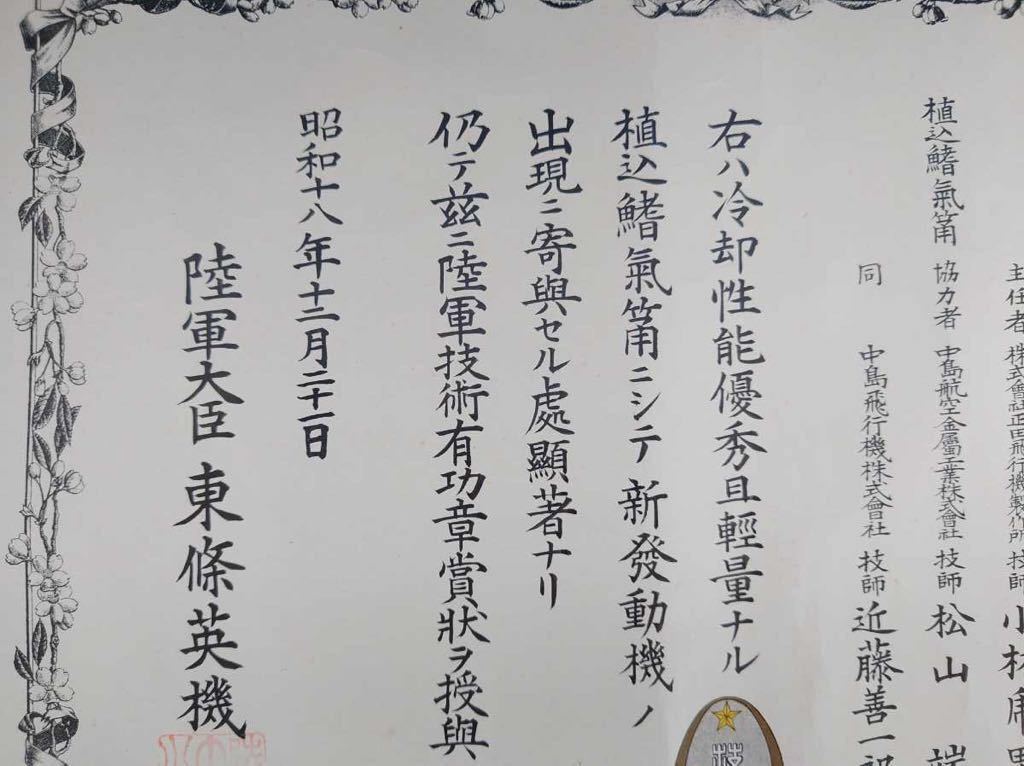 主任者 株式會社正田飛行機製作所 技師 小林
植込鰭氣筩 協力者 中島航空金屬工業株式會社 技師 松山
同 中島飛行機株式會社 技師 近藤善一郎
右ハ冷却性能優秀且輕量ナル
植込鰭氣筩ニシテ新發動機ノ
出現ニ寄與セル處顯著ナリ
仍テ兹ニ陸軍技術有功章賞狀ヲ授與
昭和十八年十二月二十一日
陸軍大臣 東條英機
技